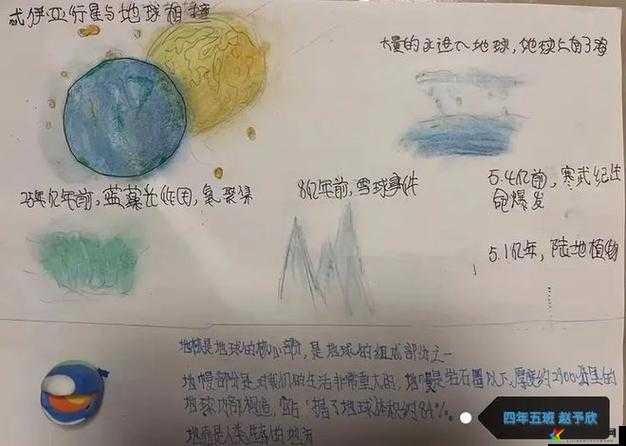 忒伊亚行星与地球相撞
大量的水进入地球，地球上有了海
25亿年前，蓝藻出作用，氧聚集
8亿年前，雪球事件
5.4亿前，寒武纪生
命爆发
5.1亿年，陆地植物
地核是地球的核心部分，是地球的组成部分之一
地幔部分是对我们的生活非常重大的，地幔是岩石圈以下，厚度约2900公里的
地球内部构造，占据了地球体积的84%。
地壳是人类生存的地方
四年五班 赵予欣